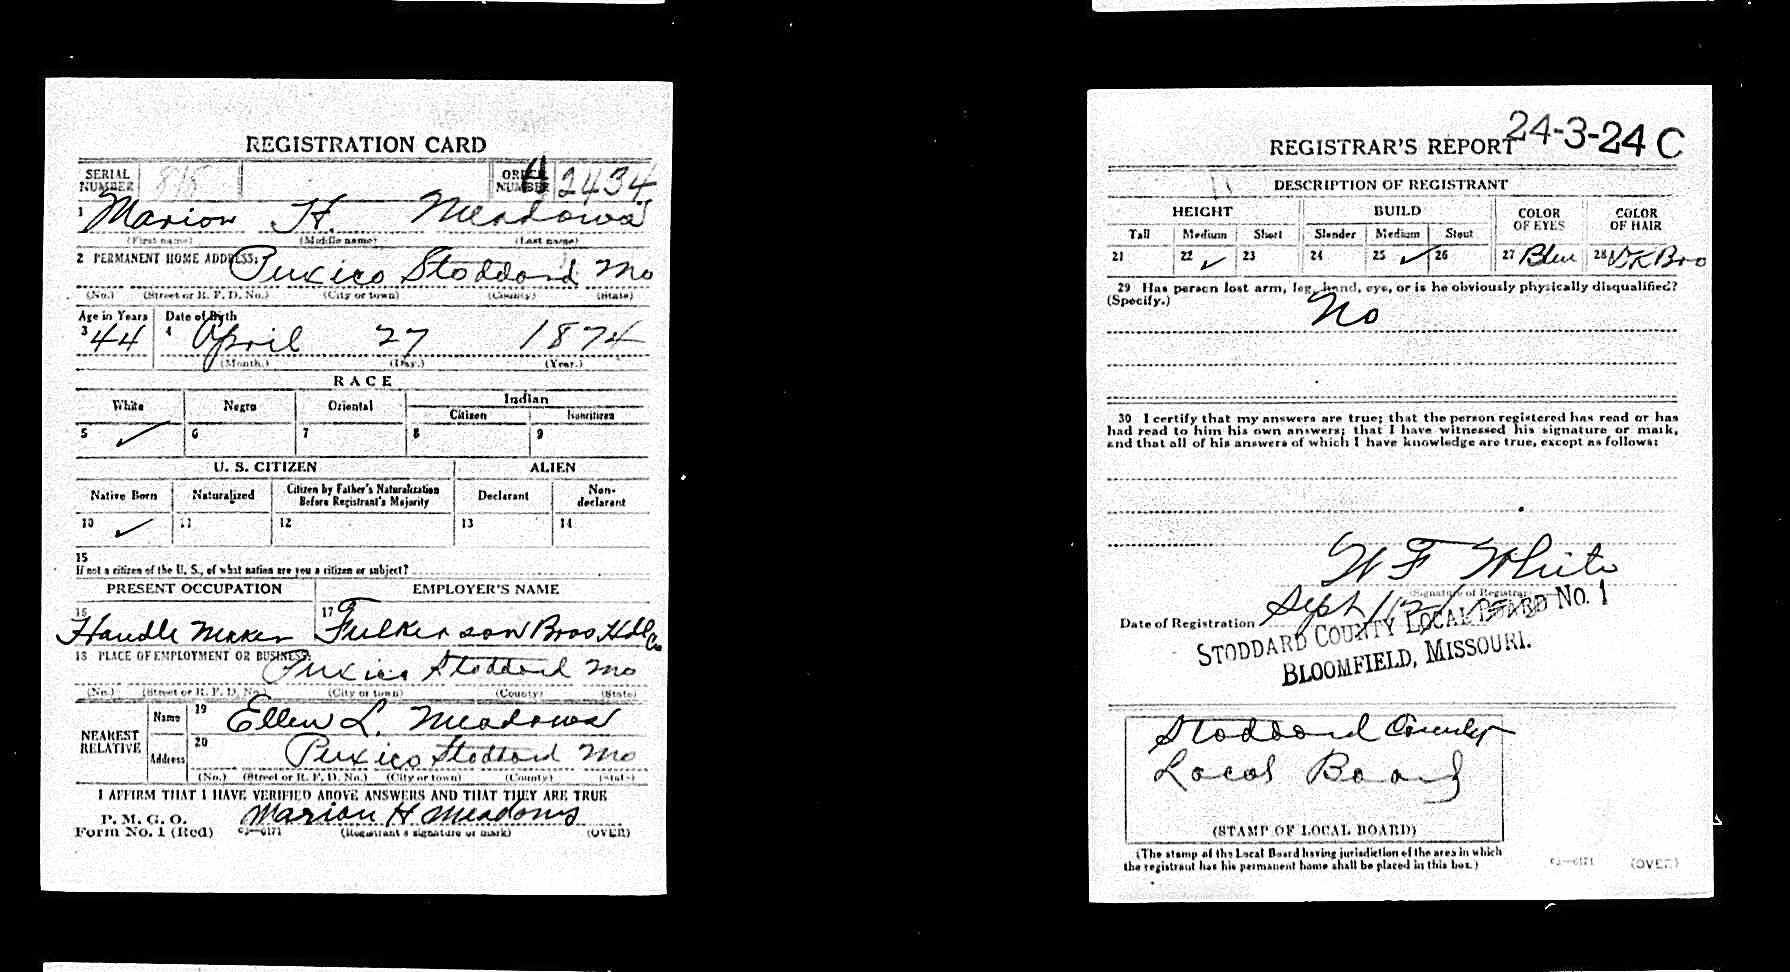 REGISTRATION CARD
SERIAL NUMBER
ORDER NUMBER A 2434
1 Marion H. Meadows
(First name) (Middle name) (Last name)
2 PERMANENT HOME ADDRESS: Puxico Stoddard Mo
(No.) (Street or R. F. D. No.) (City or town) (County) (State)
Age in Years Date of Birth
3 44 4 April 27 1874
(Month.) (Day.) (Year.)
RACE
White Negro Oriental Indian
Citizen Noncitizen
5 ✓ 6 7 8 9
U. S. CITIZEN ALIEN
Native Born Naturalized Citizen by Father's Naturalization Before Registrant's Majority Declarant Non-declarant
10 ✓ 11 12 13 14
15
If not a citizen of the U. S., of what nation are you a citizen or subject?
PRESENT OCCUPATION EMPLOYER'S NAME
16 Handle Maker 17 Fulkerson Bros Hdle Co
18 PLACE OF EMPLOYMENT OR BUSINESS: Puxico Stoddard Mo
(No.) (Street or R. F. D. No.) (City or town) (County) (State)
NEAREST RELATIVE Name 19 Ellen L. Meadows
Address 20 Puxico Stoddard Mo
(No.) (Street or R. F. D. No.) (City or town) (County) (State)
I AFFIRM THAT I HAVE VERIFIED ABOVE ANSWERS AND THAT THEY ARE TRUE
P. M. G. O.
Form No. 1 (Red) Marion H Meadows
03—6171 (Registrant's signature or mark) (OVER)
24-3-24 C
REGISTRAR'S REPORT
DESCRIPTION OF REGISTRANT
HEIGHT BUILD COLOR OF EYES COLOR OF HAIR
Tall Medium Short Slender Medium Stout
21 22 ✓ 23 24 25 ✓ 26 27 Blue 28 Dk Bro
29 Has person lost arm, leg, hand, eye, or is he obviously physically disqualified?
(Specify.) No
30 I certify that my answers are true; that the person registered has read or has
had read to him his own answers; that I have witnessed his signature or mark,
and that all of his answers of which I have knowledge are true, except as follows:
W F White
(Signature of Registrar)
Date of Registration Sept 12
STODDARD COUNTY LOCAL BOARD NO. 1
BLOOMFIELD, MISSOURI.
Stoddard County
Local Board
(STAMP OF LOCAL BOARD)
(The stamp of the Local Board having jurisdiction of the area in which
the registrant has his permanent home shall be placed in this box.)
03—6171 (OVER)